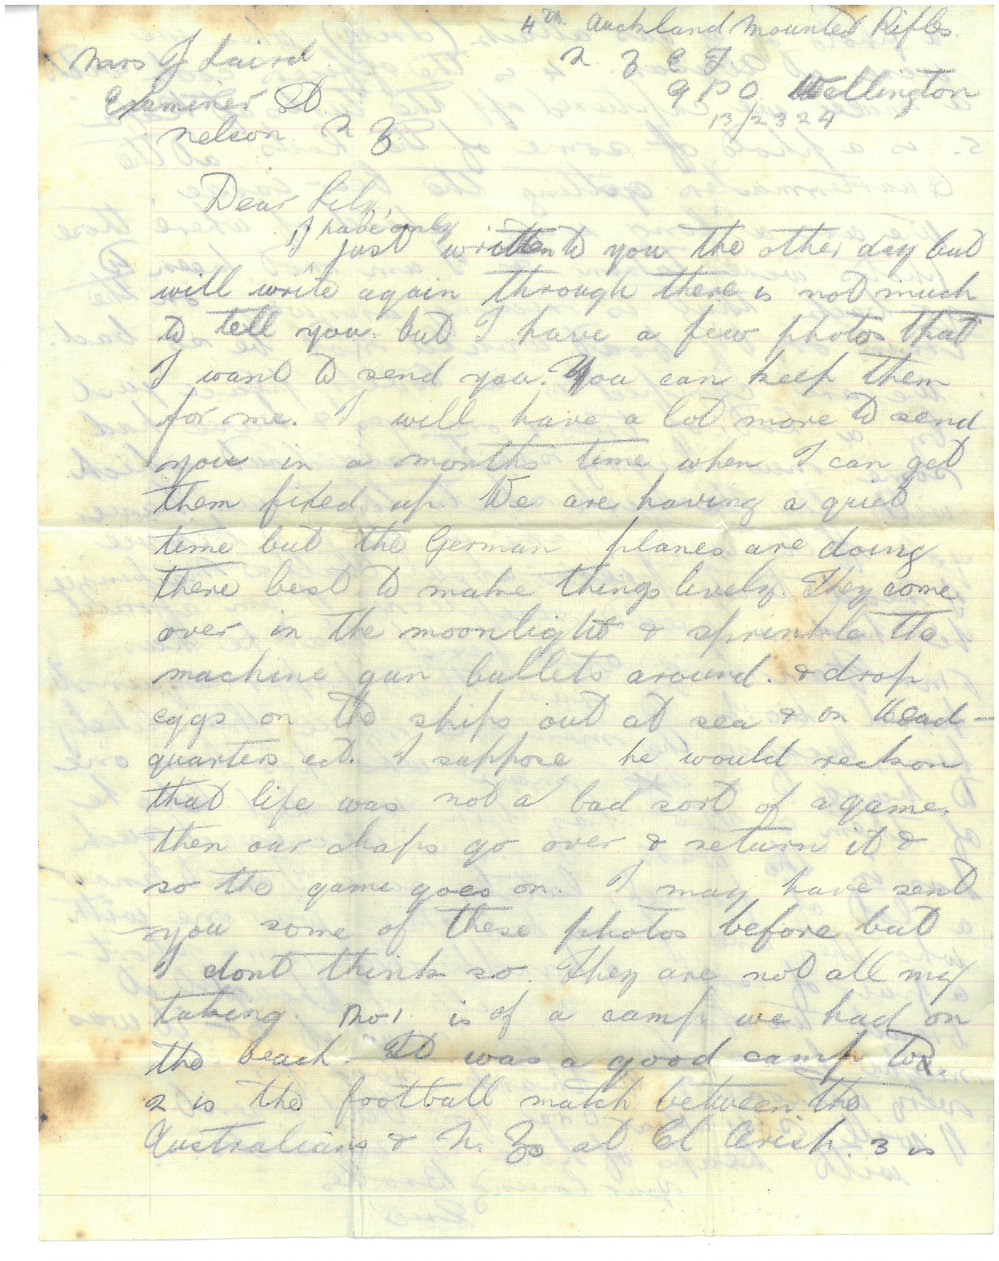 4th Auckland Mounted Rifles
Mrs J Laird
N Z E F
Examiner St
G P O Wellington
13/2324
Nelson N Z
Dear Lily
I have only
just written to you the other day but
will write again through there is not much
to tell you but I have a few photos that
I want to send you. You can keep them
for me. I will have a lot more to send
you in a months time when I can get
them fixed up. We are having a quiet
time but the German planes are doing
there best to make things lively. They come
over in the moonlight & sprinkle the
machine gun bullets around. & drop
eggs on the ships out at sea & on Head-
quarters ect. I suppose he would reckon
that life was not a bad sort of a game.
then our chaps go over & return it &
so the game goes on. I may have sent
you some of these photos before but
I dont think so. They are not all my
taking. No 1. is of a camp we had on
the beach. It was a good camp too
2 is the football match between the
Australians & N. Zs at El Arish. 3 is